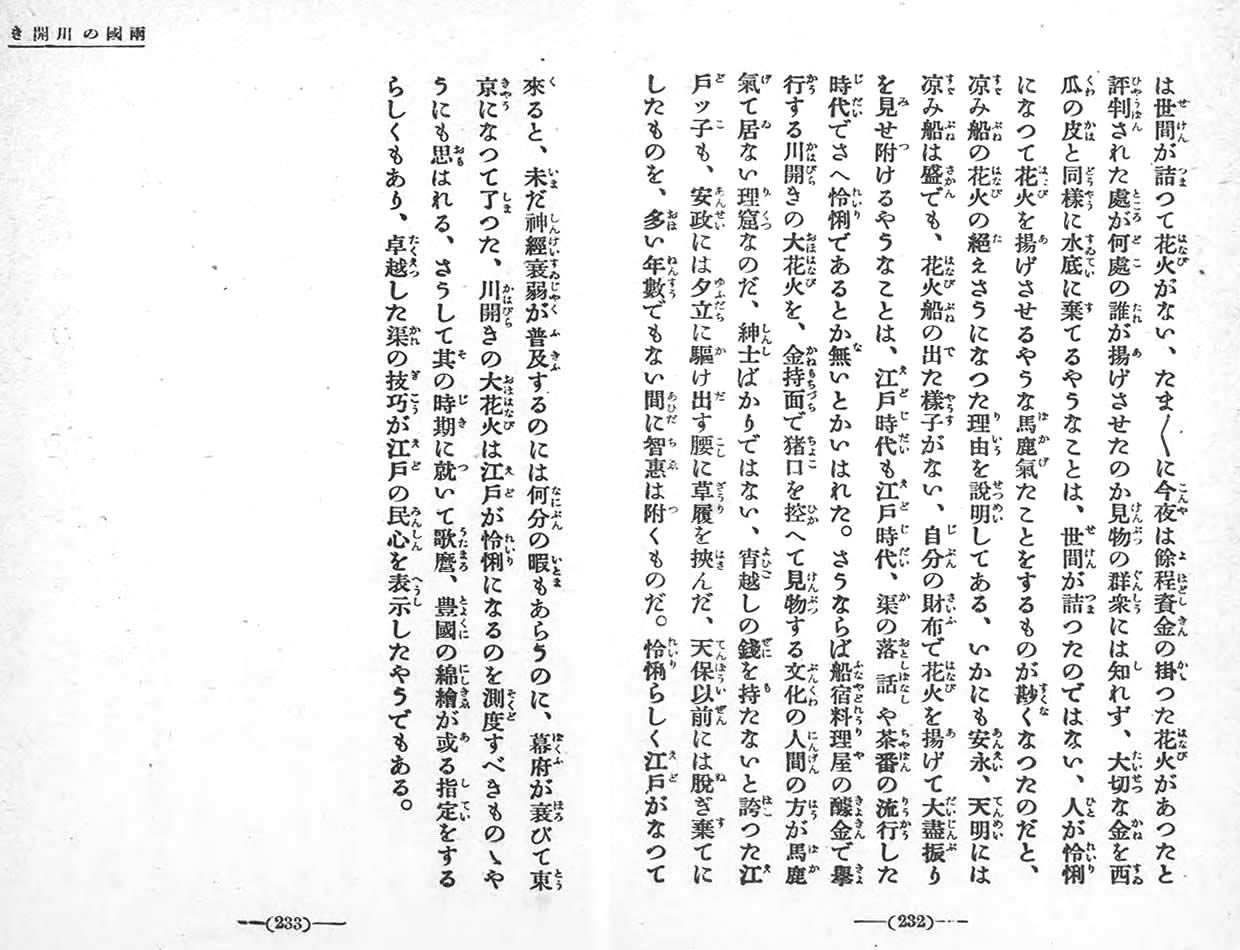 は世間が詰つて花火がない、たま〱に今夜は餘程資金の掛つた花火があつたと
評判された處が何處の誰が揚げさせたのか見物の群衆には知れず、大切な金を西
瓜の皮と同樣に水底に棄てるやうなことは、世間が詰つたのではない、人が怜悧
になつて花火を揚げさせるやうな馬鹿氣たことをするものが尠くなつたのだと、
凉み船の花火の絕えさうになつた理由を說明してある、いかにも安永、天明には
凉み船は盛でも、花火船の出た樣子がない、自分の財布で花火を揚げて大盡振り
を見せ附けるやうなことは、江戶時代も江戶時代、渠の落話や茶番の流行した
時代でさへ怜悧であるとか無いとかいはれた。さうならば船宿料理屋の醵金で擧
行する川開きの大花火を、金持面で猪口を控へて見物する文化の人間の方が馬鹿
氣て居ない理窟なのだ、紳士ばかりではない、宵越しの錢を持たないと誇つた江
戶ッ子も、安政には夕立に驅け出す腰に草履を挾んだ、天保以前には脫ぎ棄てに
したものを、多い年數でもない間に智惠は附くものだ。怜悧らしく江戶がなつて
(232)
兩國の川開き
來ると、未だ神經衰弱が普及するのには何分の暇もあらうのに、幕府が衰びて東
京になつて了つた、川開きの大花火は江戶が怜悧になるのを測度すべきものゝや
うにも思はれる、さうして其の時期に就いて歌麿、豊國の綿繪が或る指定をする
らしくもあり、卓越した渠の技巧が江戶の民心を表示したやうでもある。
(233)